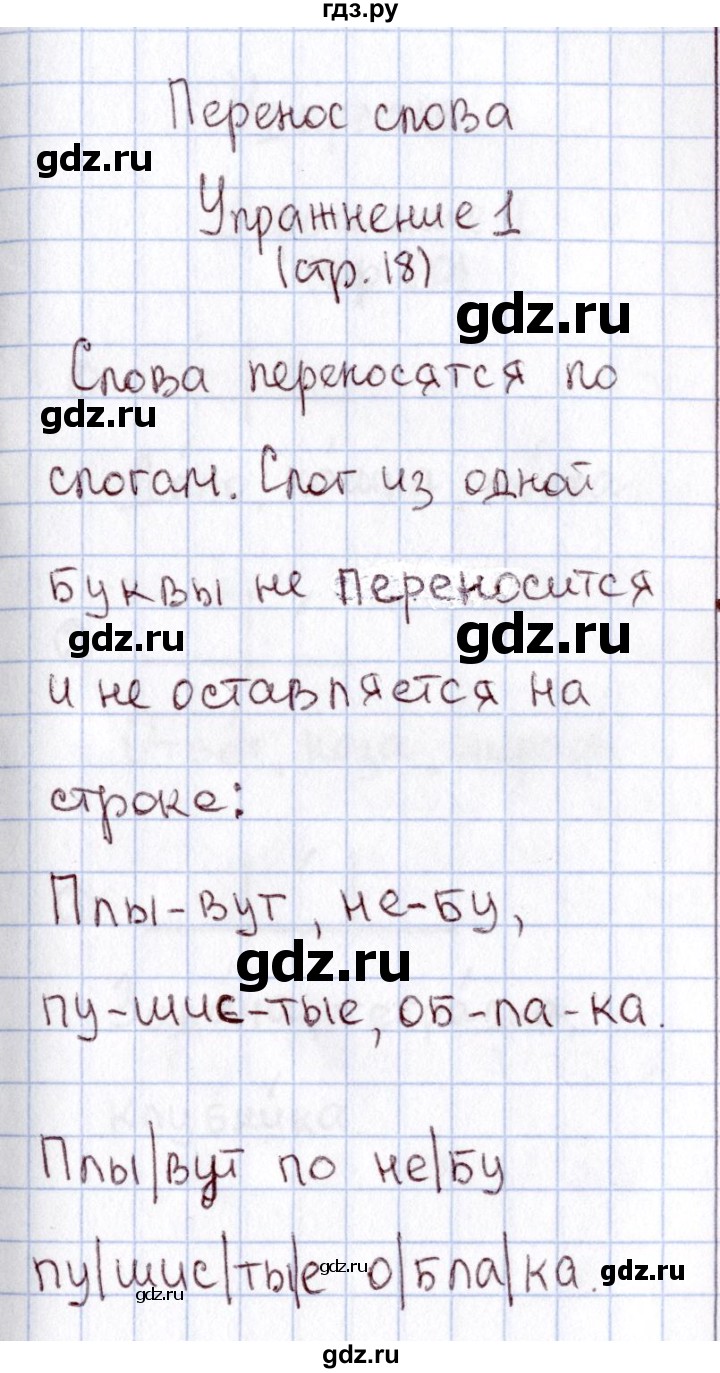 гдз.ру
Перенос слова
gdz.ru
Упражнение 1
(стр. 18)
gdz.ru
Слова переносятся по
gdz.ru
слогам. Слог из одной
буквы не переносится
gdz.ru
gdz.ru
и не оставляется на
строке:
Плы-вут, не-бу,
gdz.ru
пу-шис-тые, об-ла-ка.
Плы|вут по не|бу
пу|шис|ты|е о|бла|ка.
gdz.ru
gdz.ru
gdz.ru
gdz.ru